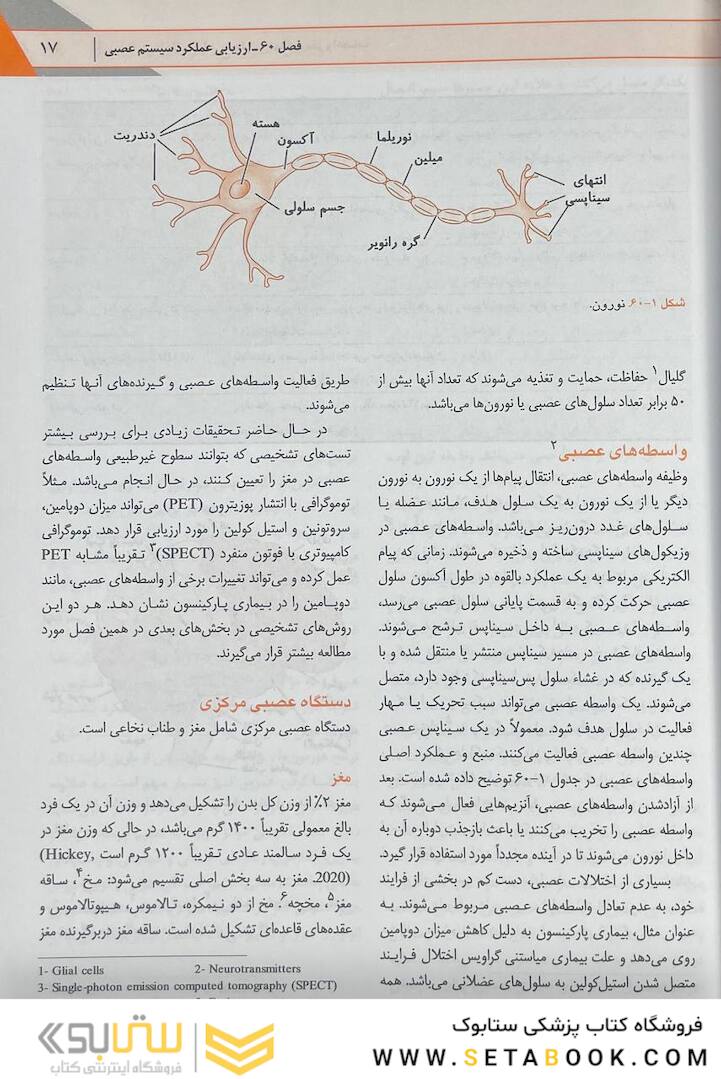 فصل ۶۰ـ ارزیابی عملکرد سیستم عصبی | ۱۷
دندریت
هسته
آکسون
نوریلما
میلین
انتهای
سیناپسی
جسم سلولی
گره رانویر
شکل ۱-۶۰. نورون.
گلیال۱ حفاظت، حمایت و تغذیه می‌شوند که تعداد آنها بیش از
۵۰ برابر تعداد سلول‌های عصبی یا نورون‌ها می‌باشد.
واسطه‌های عصبی۲
وظیفه واسطه‌های عصبی، انتقال پیام‌ها از یک نورون به نورون
دیگر یا از یک نورون به یک سلول هدف، مانند عضله یا
سلول‌های غدد درون‌ریز می‌باشد. واسطه‌های عصبی در
وزیکول‌های سیناپسی ساخته و ذخیره می‌شوند. زمانی که پیام
الکتریکی مربوط به یک عملکرد بالقوه در طول آکسون سلول
عصبی حرکت کرده و به قسمت پایانی سلول عصبی می‌رسد،
واسطه‌های عصبی به داخل سیناپس ترشح می‌شوند.
واسطه‌های عصبی در مسیر سیناپس منتشر یا منتقل شده و با
یک گیرنده که در غشاء سلول پس‌سیناپسی وجود دارد، متصل
می‌شوند. یک واسطه عصبی می‌تواند سبب تحریک یا مهار
فعالیت در سلول هدف شود. معمولاً در یک سیناپس عصبی
چندین واسطه عصبی فعالیت می‌کنند. منبع و عملکرد اصلی
واسطه‌های عصبی در جدول ۱-۶۰ توضیح داده شده است. بعد
از آزادشدن واسطه‌های عصبی، آنزیم‌هایی فعال می‌شوند که
واسطه عصبی را تخریب می‌کنند یا باعث بازجذب دوباره آن به
داخل نورون می‌شوند تا در آینده مجدداً مورد استفاده قرار گیرد.
بسیاری از اختلالات عصبی، دست کم در بخشی از فرایند
خود، به عدم تعادل واسطه‌های عصبی مربوط می‌شوند. به
عنوان مثال، بیماری پارکینسون به دلیل کاهش میزان دوپامین
روی می‌دهد و علت بیماری میاستنی گراویس اختلال فرایند
متصل شدن استیل‌کولین به سلول‌های عضلانی می‌باشد. همه
طریق فعالیت واسطه‌های عصبی و گیرنده‌های آنها تنظیم
می‌شوند.
در حال حاضر تحقیقات زیادی برای بررسی بیشتر
تست‌های تشخیصی که بتوانند سطوح غیرطبیعی واسطه‌های
عصبی در مغز را تعیین کنند، در حال انجام می‌باشد. مثلاً
توموگرافی با انتشار پوزیترون (PET) می‌تواند میزان دوپامین،
سروتونین و استیل کولین را مورد ارزیابی قرار دهد. توموگرافی
کامپیوتری با فوتون منفرد (SPECT)۳ تقریباً مشابه PET
عمل کرده و می‌تواند تغییرات برخی از واسطه‌های عصبی، مانند
دوپامین را در بیماری پارکینسون نشان دهد. هر دو این
روش‌های تشخیصی در بخش‌های بعدی در همین فصل مورد
مطالعه بیشتر قرار می‌گیرند.
دستگاه عصبی مرکزی
دستگاه عصبی مرکزی شامل مغز و طناب نخاعی است.
مغز
مغز ۲٪ از وزن کل بدن را تشکیل می‌دهد و وزن آن در یک فرد
بالغ معمولی تقریباً ۱۴۰۰ گرم می‌باشد، در حالی که وزن مغز در
یک فرد سالمند عادی تقریباً ۱۲۰۰ گرم است (Hickey,
2020). مغز به سه بخش اصلی تقسیم می‌شود: مخ۴، ساقه
مغز۵، مخچه۶. مخ از دو نیمکره، تالاموس، هیپوتالاموس و
عقده‌های قاعده‌ای تشکیل شده است. ساقه مغز دربرگیرنده مغز
1- Glial cells 2- Neurotransmitters
3- Single-photon emission computed tomography (SPECT)
فروشگاه کتاب پزشکی ستابوک
WWW.SETABOOK.COM
ستابوک
فروشگاه اینترنتی کتاب